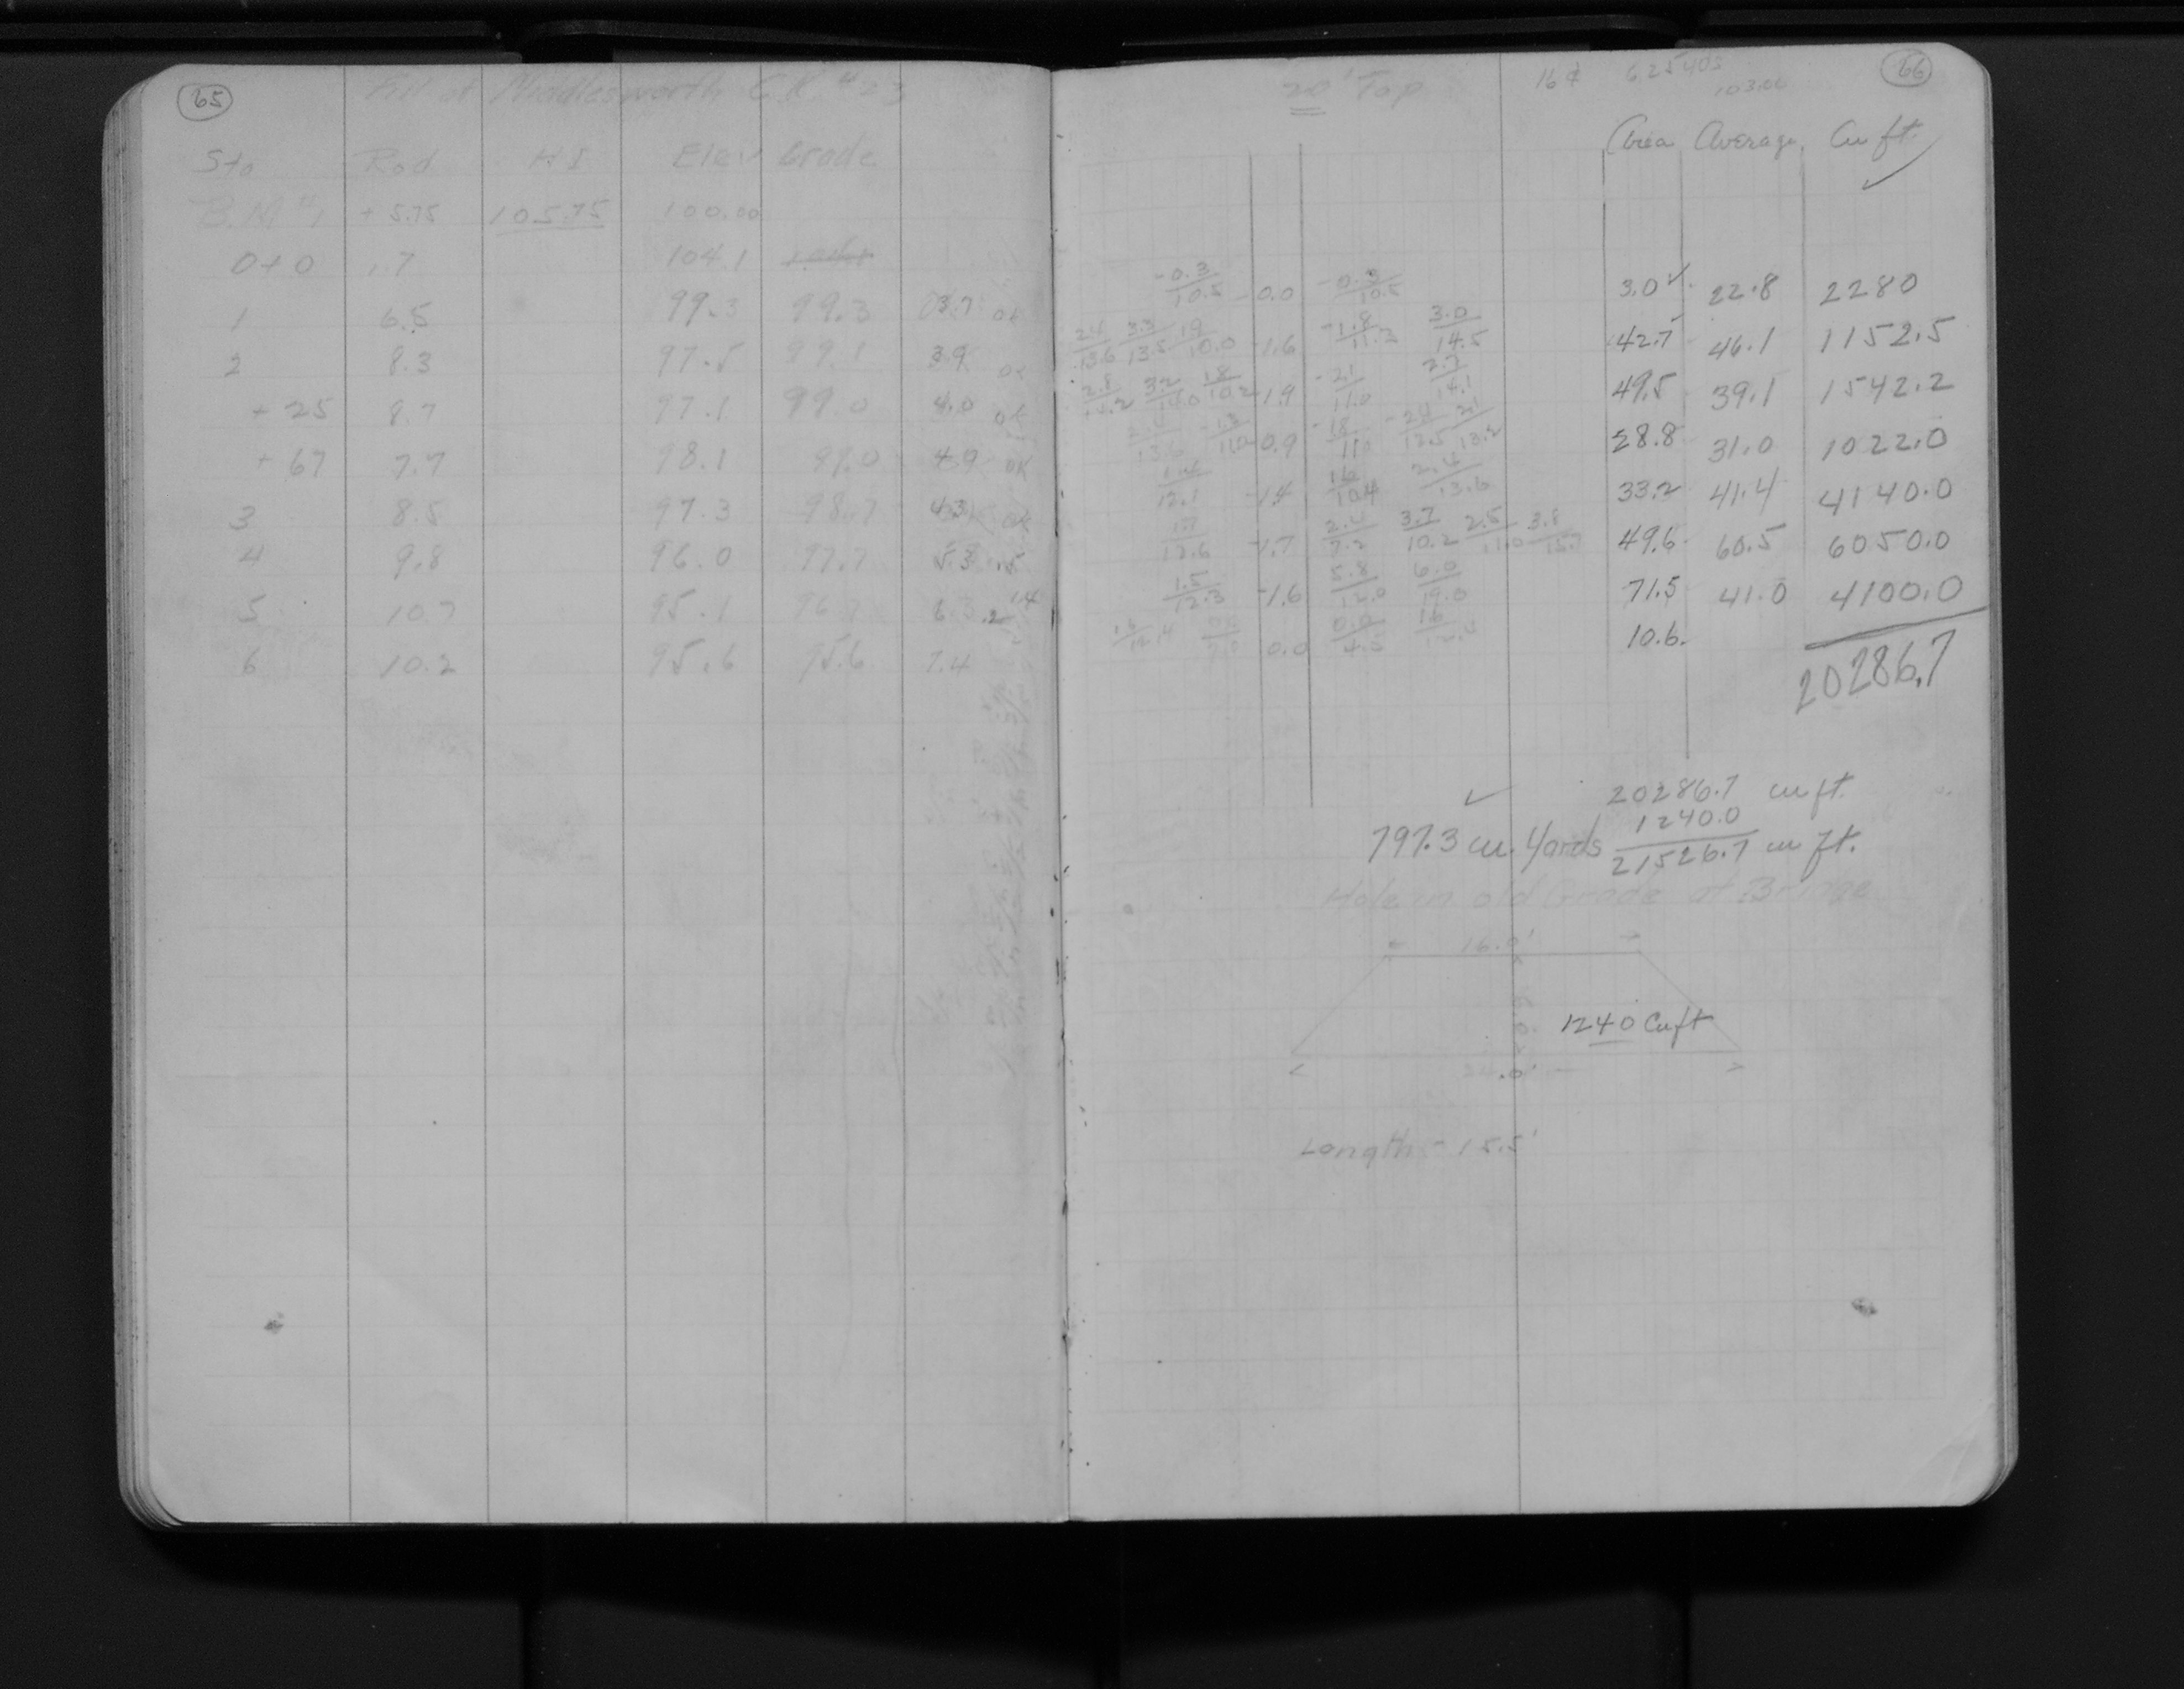 65
Fill at Middlesworth C.R. #23
Sta Rod HI Elev Grade
B.M #1 +5.75 105.75 100.00
0+0 1.7 104.1
1 6.5 99.3 99.3 3.7 ok
2 8.3 97.5 99.1 3.9 ok
+25 8.7 97.1 99.0 4.0 ok
+67 7.7 98.1 99.0 4.9 ok
3 8.5 97.3 98.7 4.3 ok
4 9.8 96.0 97.7 5.3
5 10.7 95.1 96.7 6.3 .2
6 10.2 95.6 95.6 7.4
66
20' Top 16¢ 625 yds
103.00
Area Average Cu ft.
-0.3/10.5 0.0 -0.3/10.5 3.0 22.8 2280
2.4/13.6 3.3/13.5 1.9/10.0 -1.6 -1.8/11.2 3.0/14.5 42.7 46.1 1152.5
2.8/14.2 3.2/14.0 1.8/10.2 -1.9 -2.1/11.0 2.7/14.1 49.5 39.1 1542.2
-0.9 -1.8/11.0 28.8 31.0 1022.0
1.4/12.1 -1.4 1.6/10.4 2.4/13.6 33.2 41.4 4140.0
1.7/12.6 -1.7 2.4/7.2 3.7/10.2 2.5/11.0 3.8/15.7 49.6 60.5 6050.0
1.5/12.3 -1.6 5.8/12.0 6.0/19.0 71.5 41.0 4100.0
1.6/12.4 0.0 0.0/4.5 1.6/12.4 10.6
20286.7
20286.7 cu ft.
1240.0
797.3 cu. Yards 21526.7 cu ft.
Hole in old Grade at Bridge
16.0'
1240 Cu ft
24.0'
Length - 15.5'